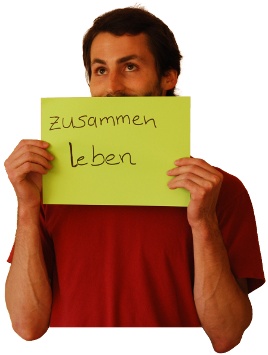 zusammen
leben